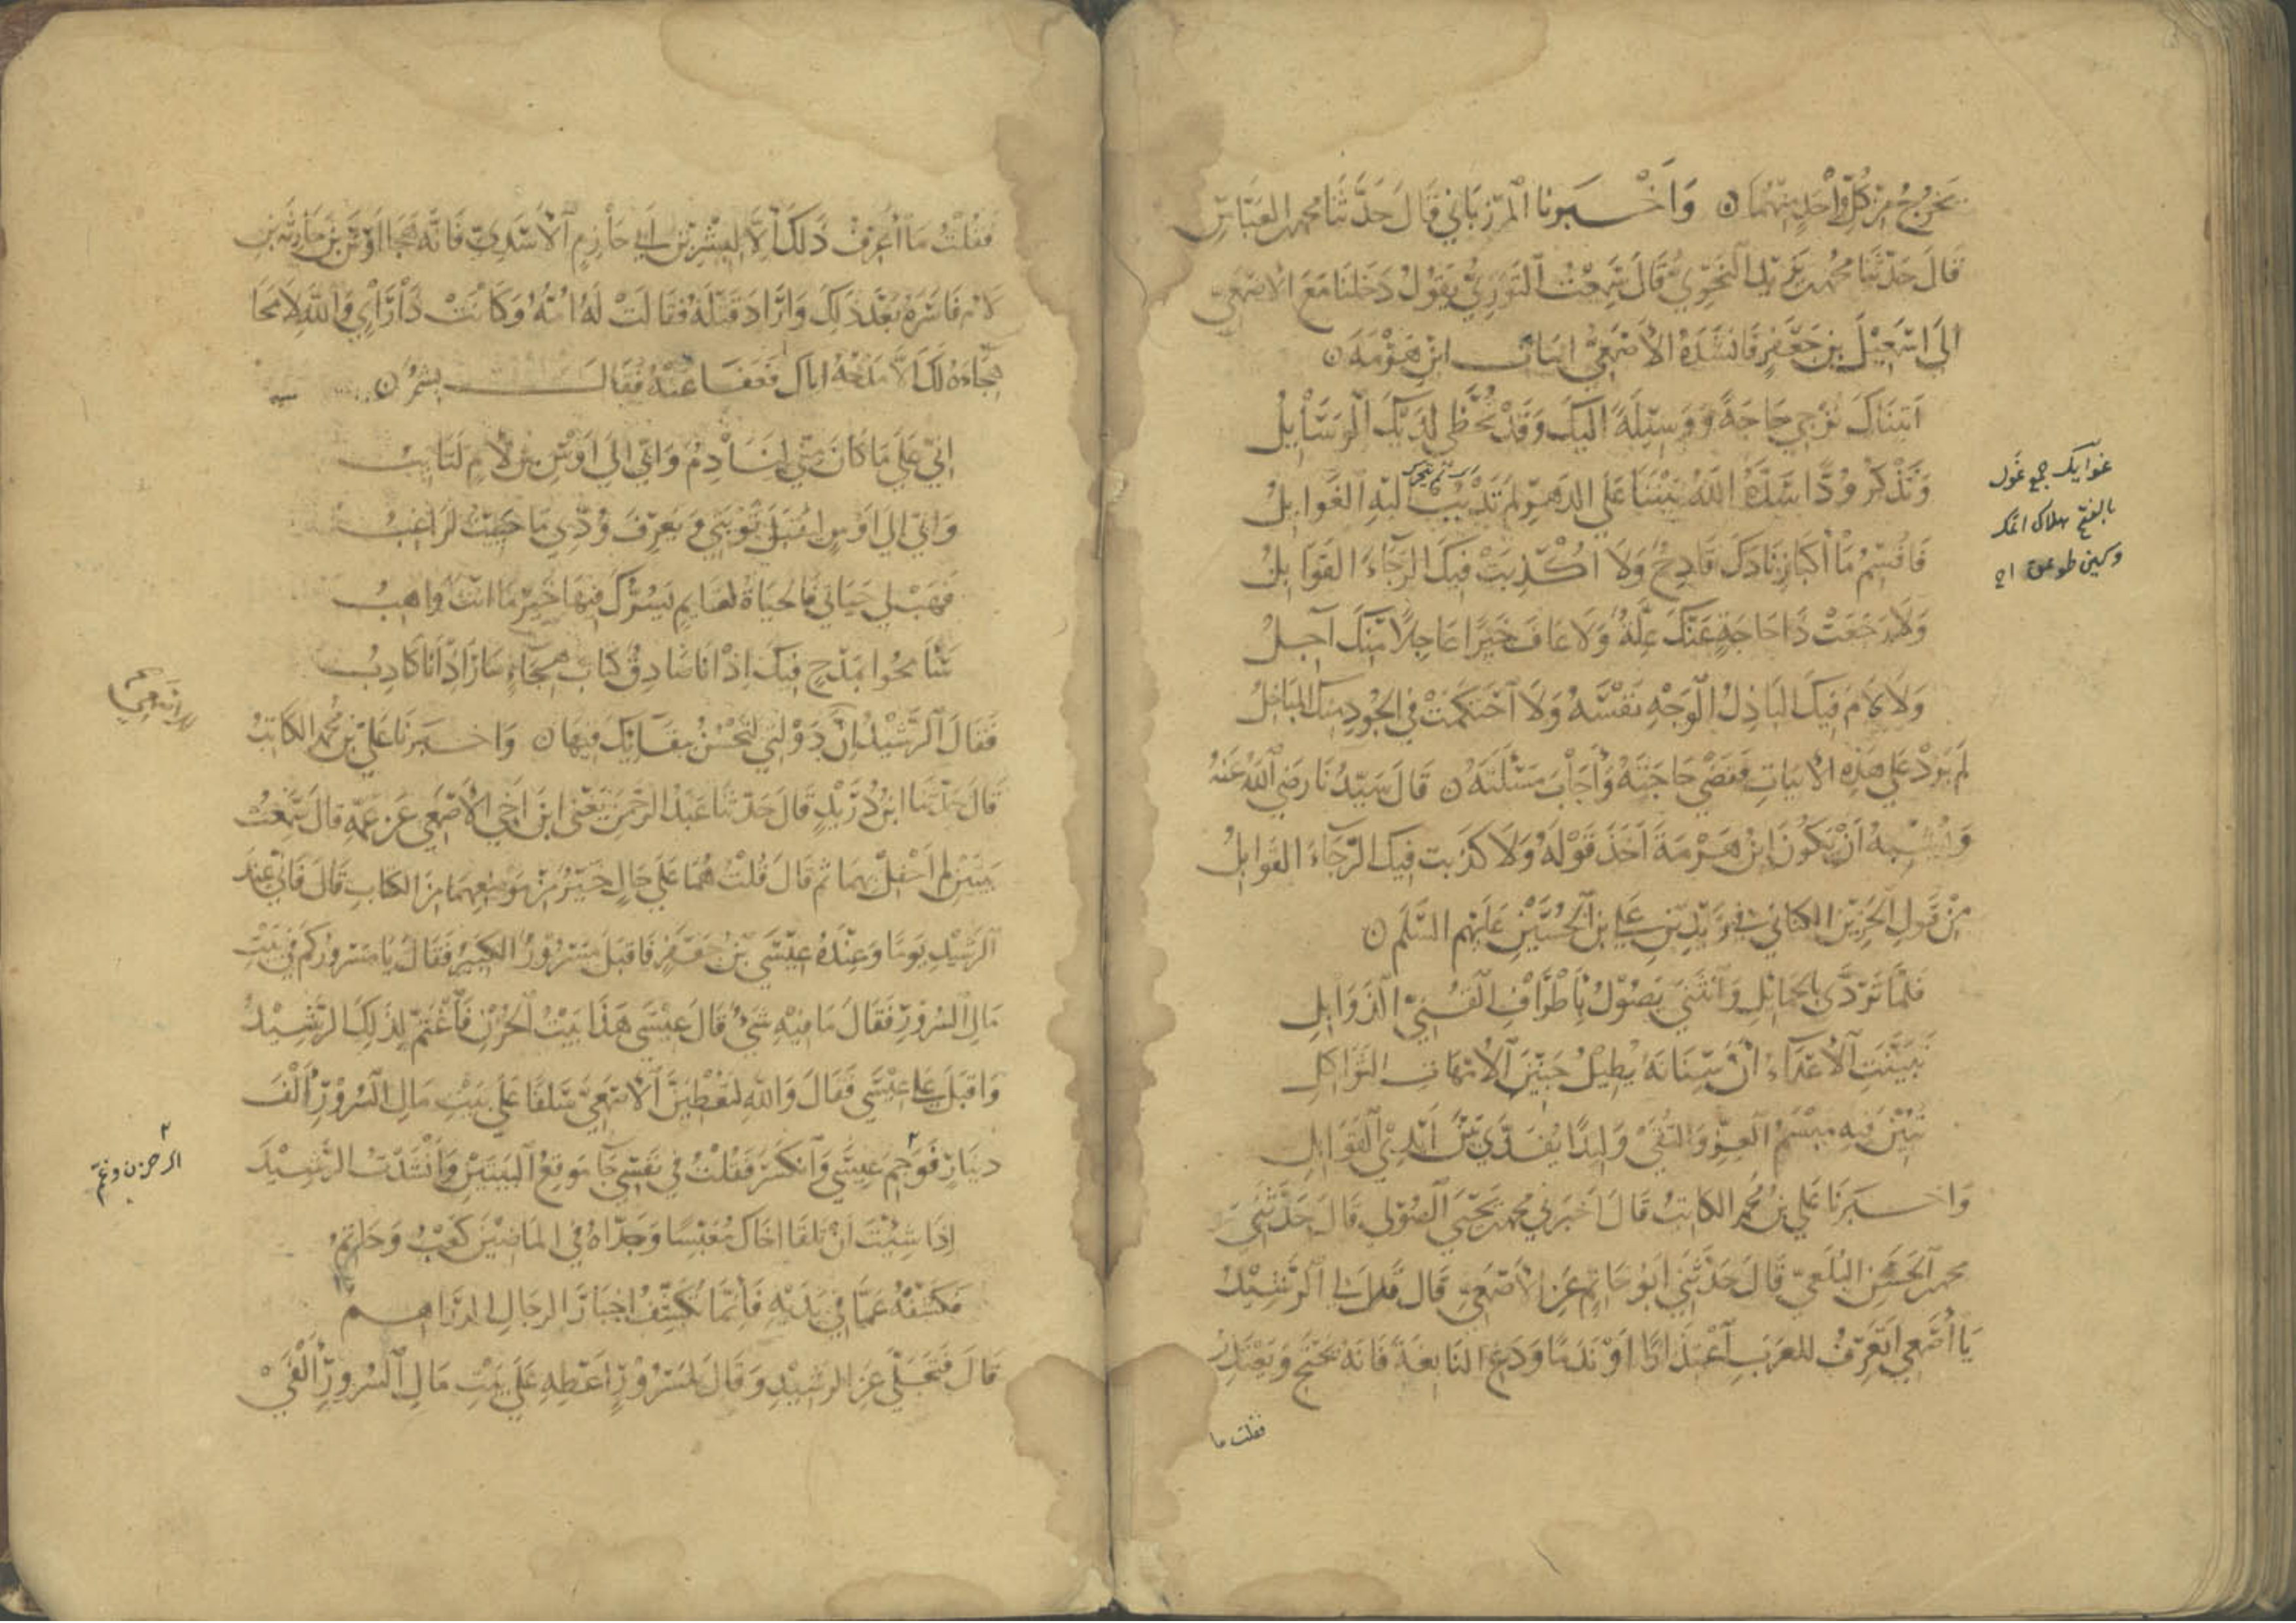 يخرج من كل واحد منهما ۞ وأخبرنا المرزباني قال حدثنا محمد بن العباس
قال حدثنا محمد بن يزيد النحوي قال سمعت التوزي يقول دخلنا مع الأصمعي
إلى اسمعيل بن جعفر فأنشده الأصمعي أبيات ابن هرمة ۞
أتيناك نزجي حاجة ووسيلة إليك وقد تحظى لديك الوسائل
ونذكر ودا شده الله بيننا على الدهر لم تدبب إليه الغوائل
فأقسم ما أكبا زنادك قادح ولا أكذبت فيك الرجاء القوابل
ولا رجعت ذا حاجة عنك علة ولا عاق خيرا عاجلا منك آجل
ولا لام فيك الباذل الوجه نفسه ولا احتكمت في الجود منك المباخل
لم يزد على هذه الأبيات فقضى حاجته وأجاب مسئلته ۞ قال سيدنا رضي الله عنه
ويشبه أن يكون ابن هرمة أخذ قوله ولا كذبت فيك الرجاء القوابل
من قول الحزين الكناني في زيد بن علي بن الحسين عليهم السلم ۞
فلما تردى بالحمائل وانثنى يصول بأطراف القني الذوابل
تبينت الأعداء أن سنانه يطيل حنين الأمهات الثواكل
تبين فيه ميسم العز والتقى وليدا يفدى بين أيدي القوابل
وأخبرنا علي بن محمد الكاتب قال أخبرني محمد بن يحيى الصولي قال حدثني
محمد بن الحسن البلعي قال حدثني أبو حاتم عن الأصمعي قال قال لي الرشيد
يا أصمعي أتعرف للعرب اعتذارا أو ندما ودع النابغة فإنه يحتج ويعتذر
فقلت ما
غوايل جمع غول
بالفتح هلاك
فقلت ما أعرف ذلك إلا لبشر بن أبي حازم الأسدي فإنه هجا أوس بن حارثة بن
لام فأسره بعد ذلك وأراد قتله فقالت له أمه وكانت ذا رأي والله لا محا
هجاءه لك إلا مدحه إياك فعفا عنه فقال بشر ۞
إني على ما كان مني لنادم وإني إلى أوس بن لام لتايب
وإني إلى أوس ليقبل توبتي ويعرف ودي ما حييت لراغب
فهب لي حياتي فالحياة لقايم يسرك فيها خير ما أنت واهب
سأمحوا بمدح فيك إذ أنا صادق كتاب هجاء سار إذ أنا كاذب
فقال الرشيد إن دولتي لتحسن ببقائك فيها ۞ وأخبرنا علي بن محمد الكاتب
قال حدثنا ابن دريد قال حدثنا عبد الرحمن يعني ابن أخي الأصمعي عن عمه قال سمعت
بيتين لم أحفل بهما ثم قال قلت هما على حال خير من موضعهما من الكتاب قال فإني عند
الرشيد يوما وعنده عيسى بن جعفر فأقبل مسرور الكبير فقال يا مسرور كم في بيت
مال السرور فقال ما فيه شيء قال عيسى هذا بيت الحزن فاغتم لذلك الرشيد
وأقبل على عيسى فقال والله لتعطين الأصمعي سلفا على بيت مال السرور ألف
دينار فوجم عيسى وانكسر فقلت في نفسي جا موقع البيتين وأنشدت الرشيد
إذا شئت أن تلقا أخاك معبسا وجداه في الماضين كعب وحاتم
فكشفه عما في يديه فإنما تكشف أخبار الرجال الدراهم
قال فتجلى عن الرشيد وقال لمسرور أعطه على بيت مال السرور ألفي